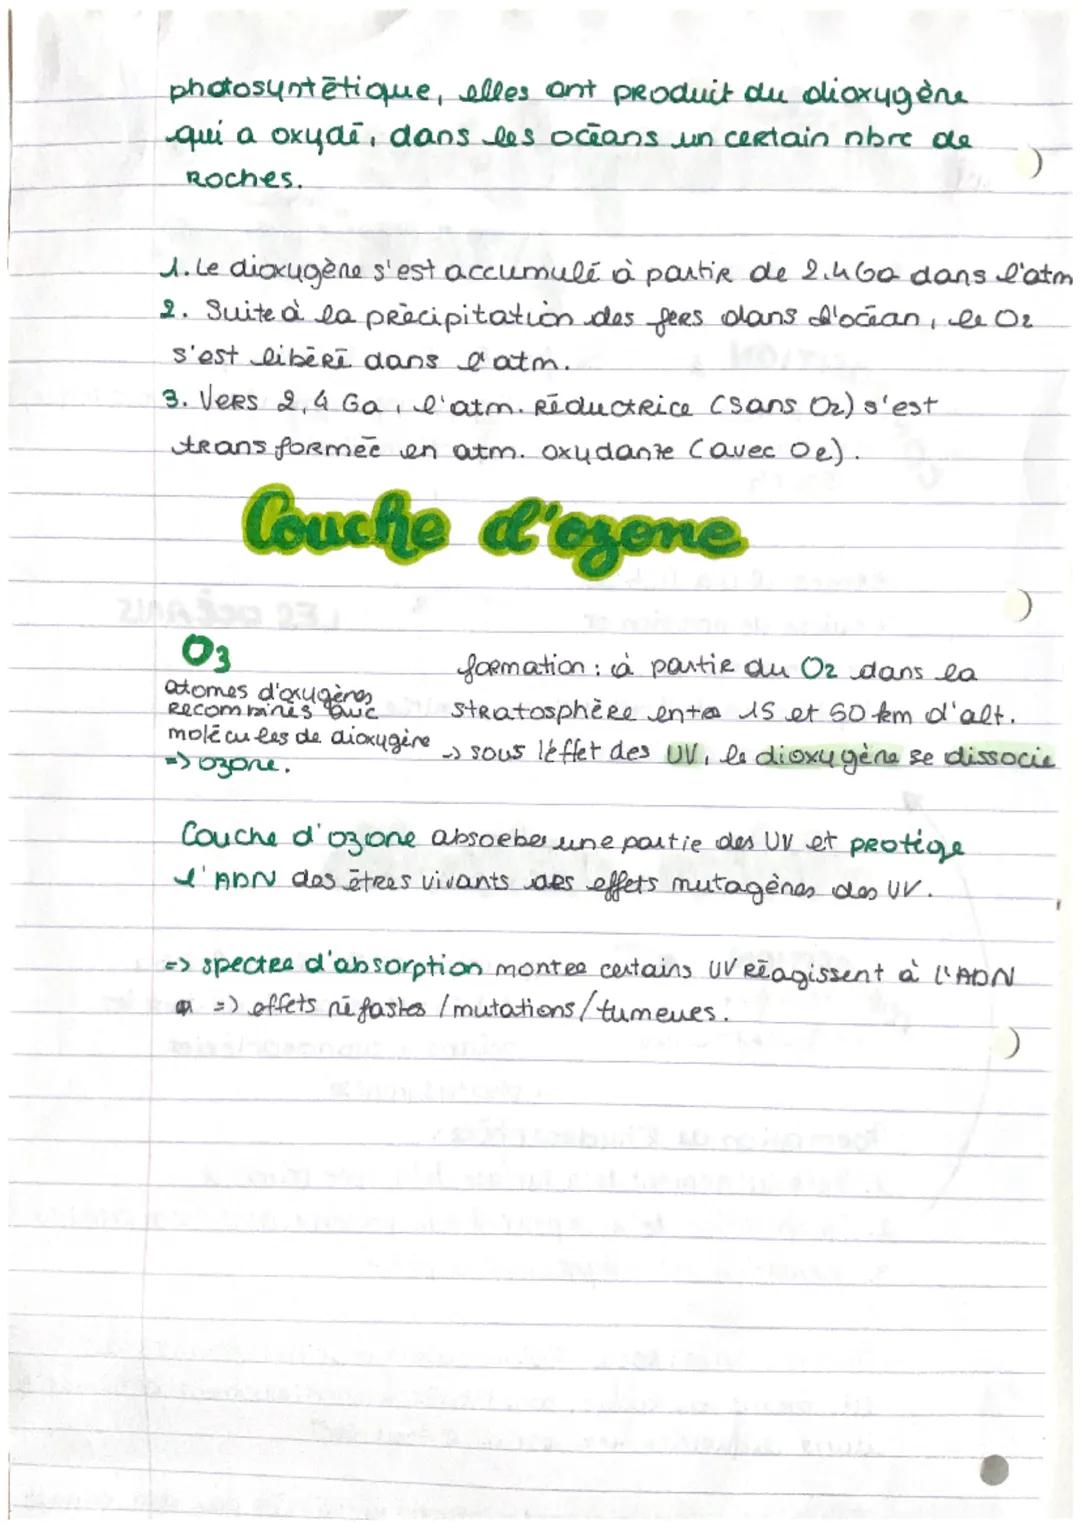 photosyntétique, elles ont produit du dioxygène
qui a oxydé, dans les océans un certain nbre de
Roches.
1. Le dioxygène s'est accumulé à partir de 2.4 Ga dans l'atm
2. Suite à la précipitation des fers dans l'océan, le O2
s'est libéré dans l'atm.
3. Vers 2,4 Ga, l'atm. Réductrice (sans O2) s'est
transformée en atm. oxydante (avec O2).
Couche d'ozone
O3
atomes d'oxygènes
Recombinés avec
molécules de dioxygène
=> ozone.
formation : à partir du O2 dans la
stratosphère entre 15 et 50 km d'alt.
-> sous l'éffet des UV, le dioxygène se dissocie
Couche d'ozone absorber une partie des UV et protège
l'ADN des êtres vivants des effets mutagènes des UV.
=> spectre d'absorption montre certains UV Réagissent à l'ADN
=> effets néfastes / mutations / tumeurs.
LES OCÉANS